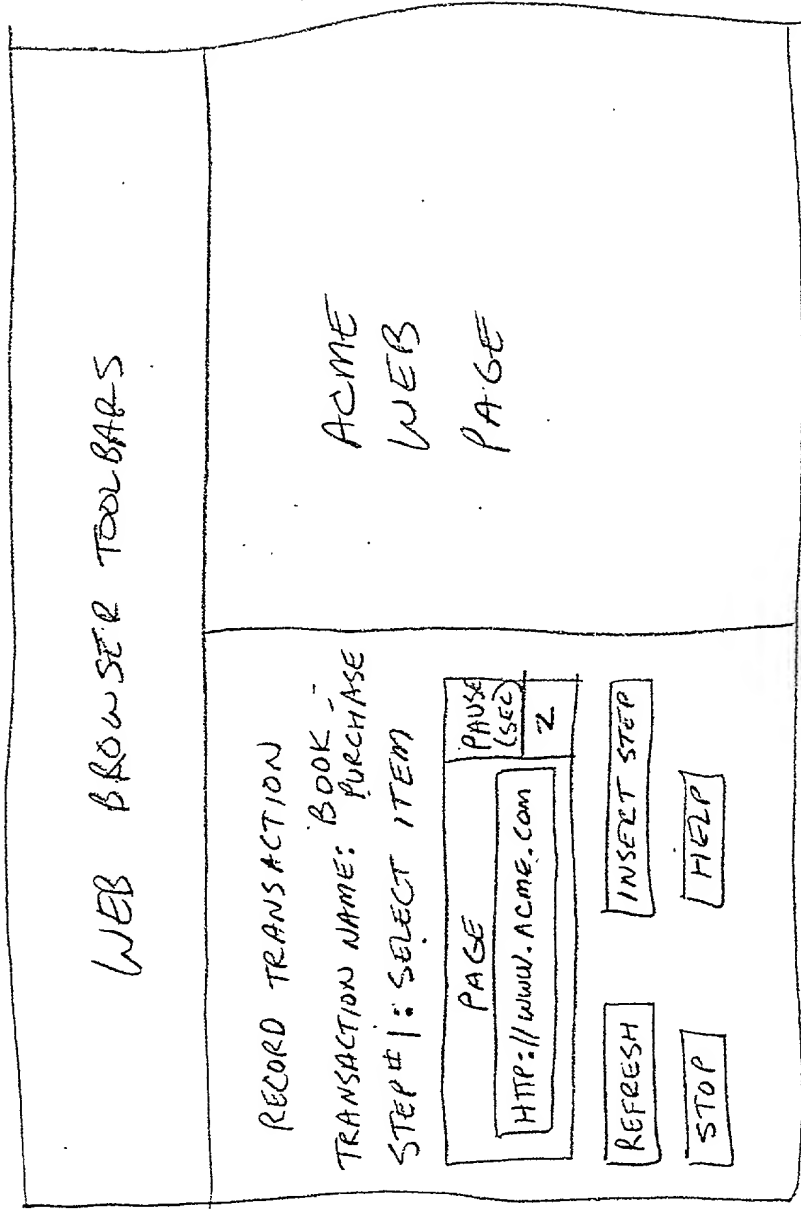 WEB BROWSER TOOLBARS
RECORD TRANSACTION
TRANSACTION NAME: BOOK-
PURCHASE
STEP# 1: SELECT ITEM
PAGE
PAUSE
(SEC)
HTTP://WWW.ACME.COM
2
REFRESH
INSERT STEP
STOP
HELP
ACME
WEB
PAGE